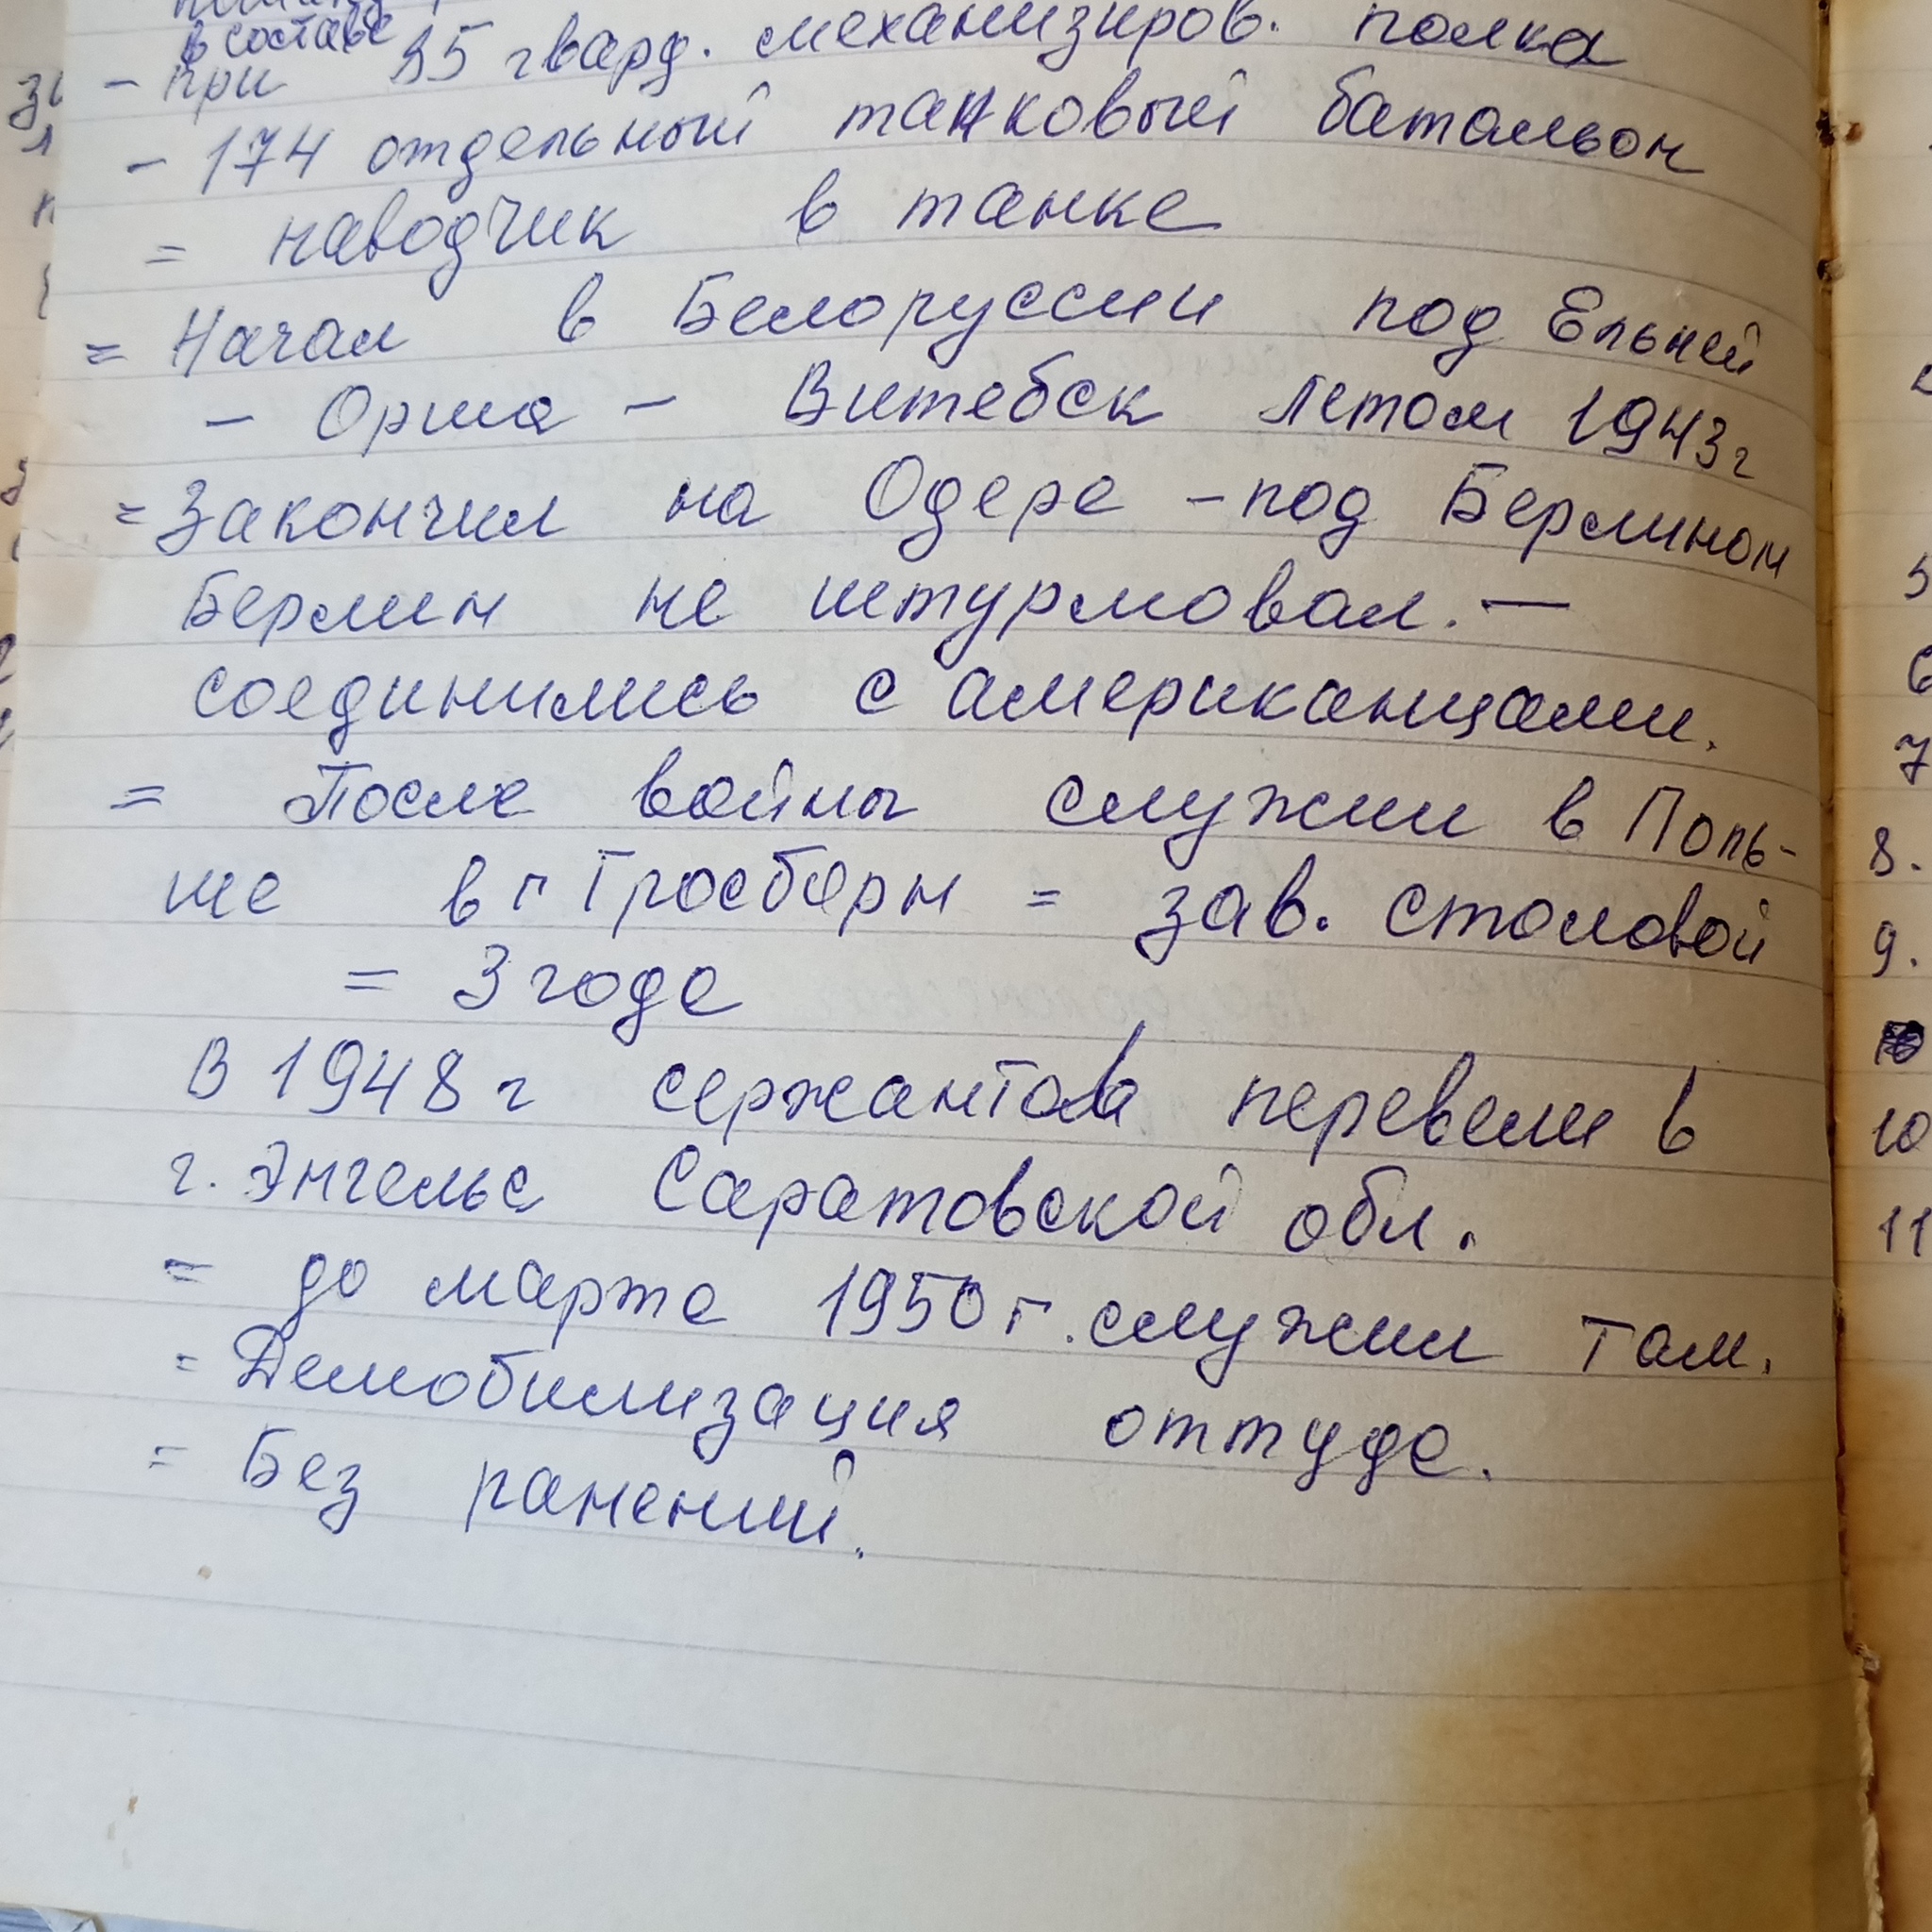 в составе
- при 35 гвард. механизиров. полка
- 174 отдельный танковый батальон
= наводчик в танке
= Начал в Белоруссии под Ельней
- Орша - Витебск летом 1943г
= Закончил на Одере - под Берлином
Берлин не штурмовал. —
соединились с американцами.
= После войны служил в Поль-
ше в г Гросборн = зав. столовой
= 3 года
В 1948 г сержантов перевели в
г. Энгельс Саратовской обл.
= до марта 1950 г. служил там.
= Демобилизация оттуда.
= Без ранений.
5
6
7
8.
9.
10
11